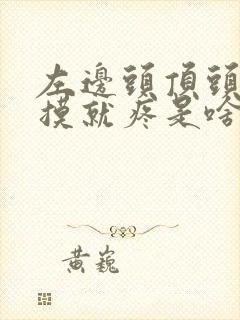 左邊頭頂頭
摸就疼是啥
黃巍